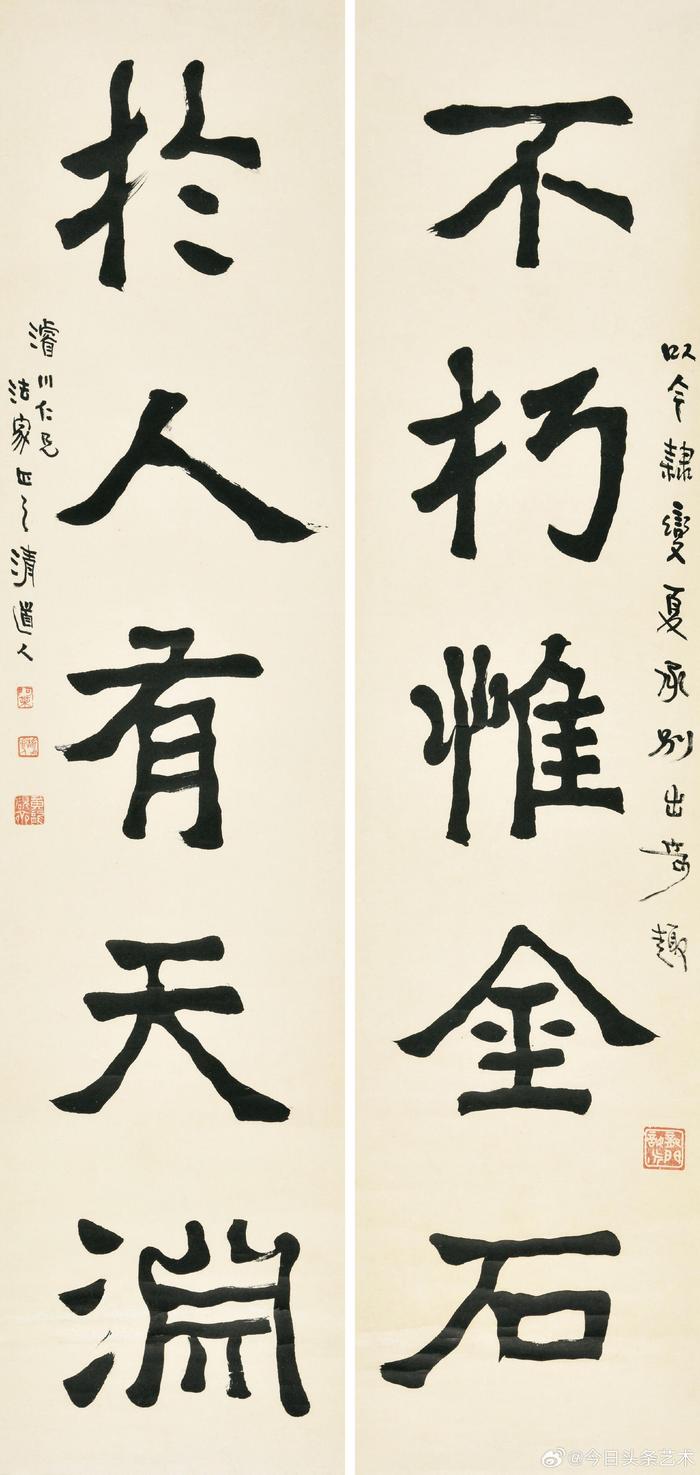 不朽惟金石
以今隸變夏承別出奇趣
於人有天淵
濬川仁兄
法家正之清道人
@今日头条艺术